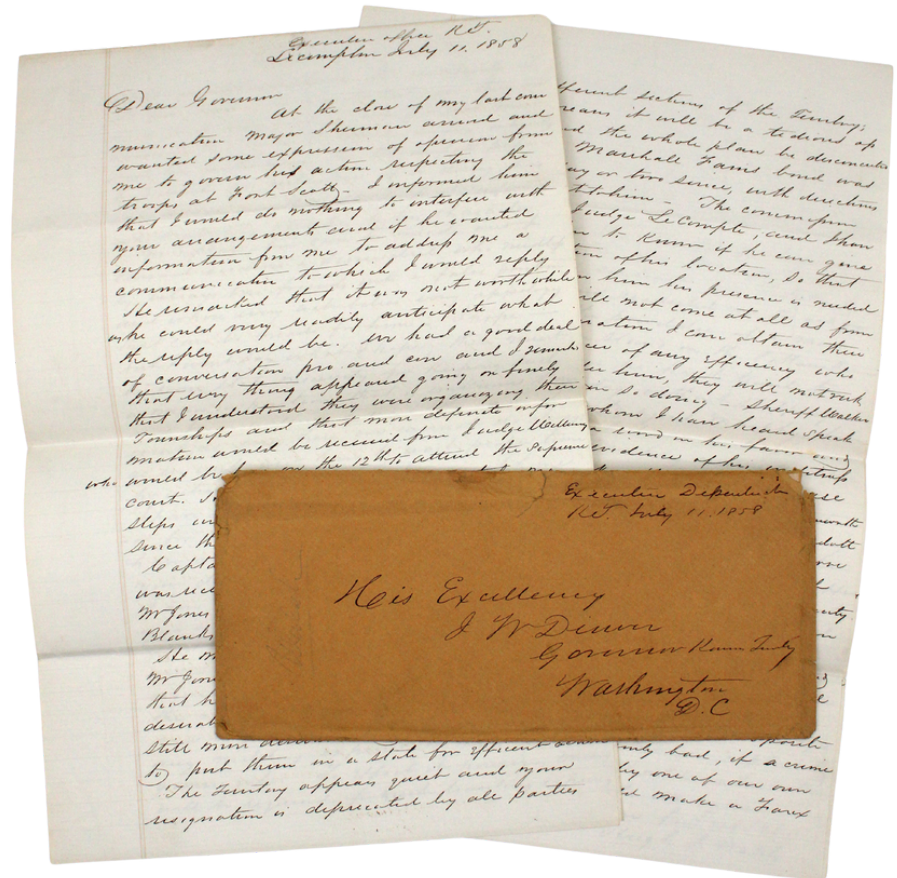 Executive office K.T.
Lecompton July 11. 1858
Dear Governor
At the close of my last com
munication Major Sherman arrived and
wanted some expression of opinion from
me to govern his action respecting the
troops at Fort Scott. I informed him
that I would do nothing to interfere with
your arrangements and if he wanted
information from me to address me a
communication to which I would reply
He remarked that it was not worth while
as he could very readily anticipate what
the reply would be. We had a good deal
of conversation pro and con and I remarked
that every thing appeared going on finely
that I understood they were organizing their
Townships and that more definite infor
mation would be received from Judge Williams
who would be here on the 12th to attend the Supreme
court.
steps
since th
Capta
was rec
Mr Jones
Blanks
He m
Mr Jone
that h
desirab
still more
to put them in a state for efficient
The Territory appears quiet and your
resignation is deprecated by all parties
fferent sections of the Territory;
means it will be a tedious op
d the whole plan be disconcerted
Marshall Fains bond was
ay or two since, with directions
to him - The commission
Judge LeCompte, and Shaw
to know if he can give
tion of his location, so that
him his presence is needed
ill not come at all as from
ration I can obtain there
cer of any efficiency who
der him, they will not risk
in so doing - Sheriff Walker
whom I have heard speak
a word in his favor and
evidence of his
bad, if a crime
by one of our own
make a
Executive Department
K.T. July 11. 1858
His Excellency
J W Denver
Governor Kansas Territy
Washington
D.C